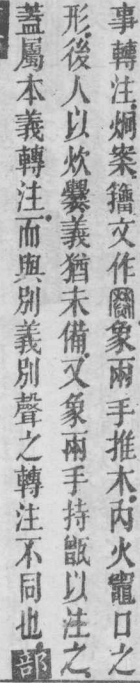 事轉注烱案籀文作𤏷象兩手推木内火竈口之
形後人以炊爨義猶未備又象兩手持甑以注之
蓋屬本義轉注而與別義別聲之轉注不同也部